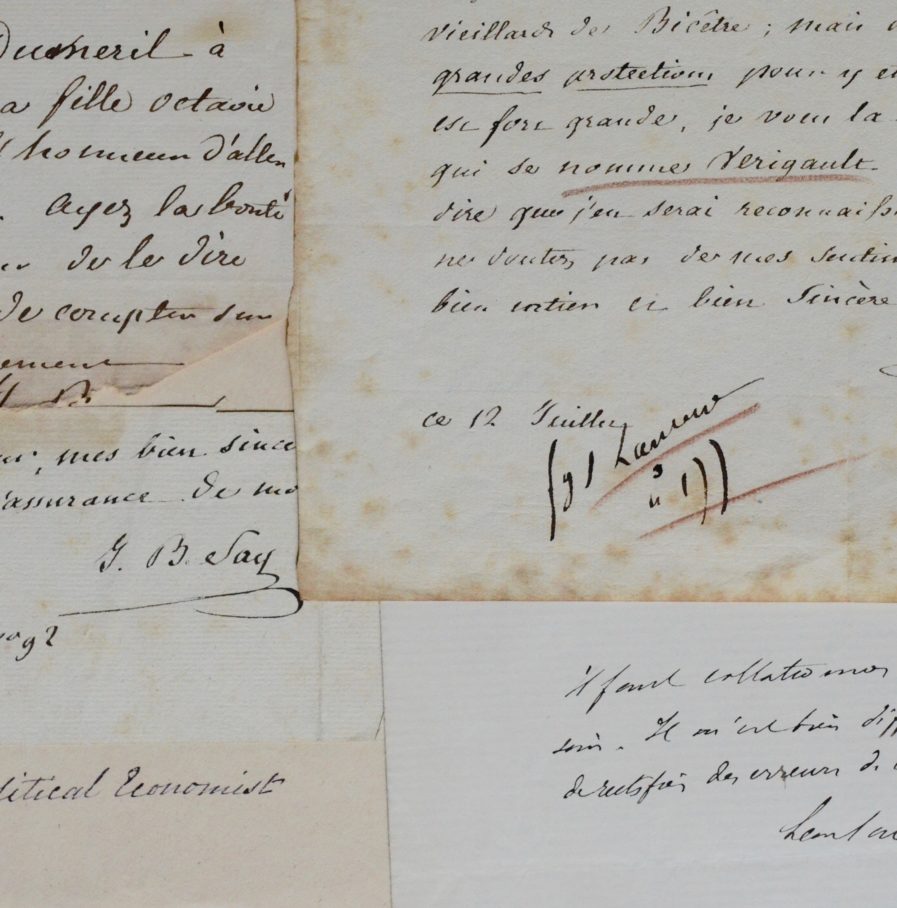 Dumeril à
a fille octavie
l'honneur d'aller
. Ayez la bonté
de le dire
de compter sur
ement
, mes bien since
'assurance de mo
J. B. Say
no 92
litical Economist
vieillards de Bicêtre ; mais
grandes protections pour y en
est fort grande, je vous la
qui se nomme Verigault.
dire que j'en serai reconnaiss
ne doutez pas de mes sentim
bien et bien Sincère
ce 12 Juillet
il faut collationner
soin. Il m'est bien diff
des erreurs de